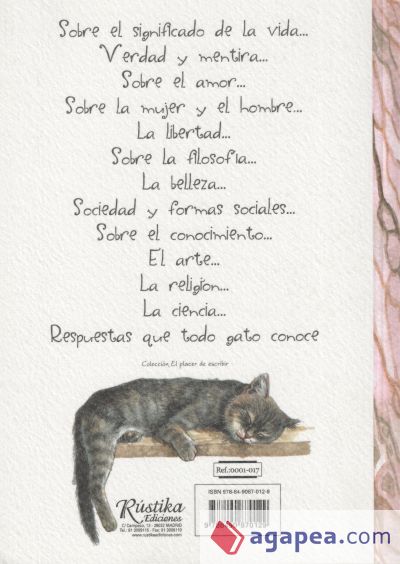 Sobre el significado de la vida...
Verdad y mentira...
Sobre el amor...
Sobre la mujer y el hombre...
La libertad...
Sobre la filosofía...
La belleza...
Sociedad y formas sociales...
Sobre el conocimiento...
El arte...
La religión...
La ciencia...
Respuestas que todo gato conoce
Colección El placer de escribir
Ref.:0001-017
ISBN 978-84-9087-012-9
Rústika
Ediciones
www.rustikaediciones.com
agapea.com